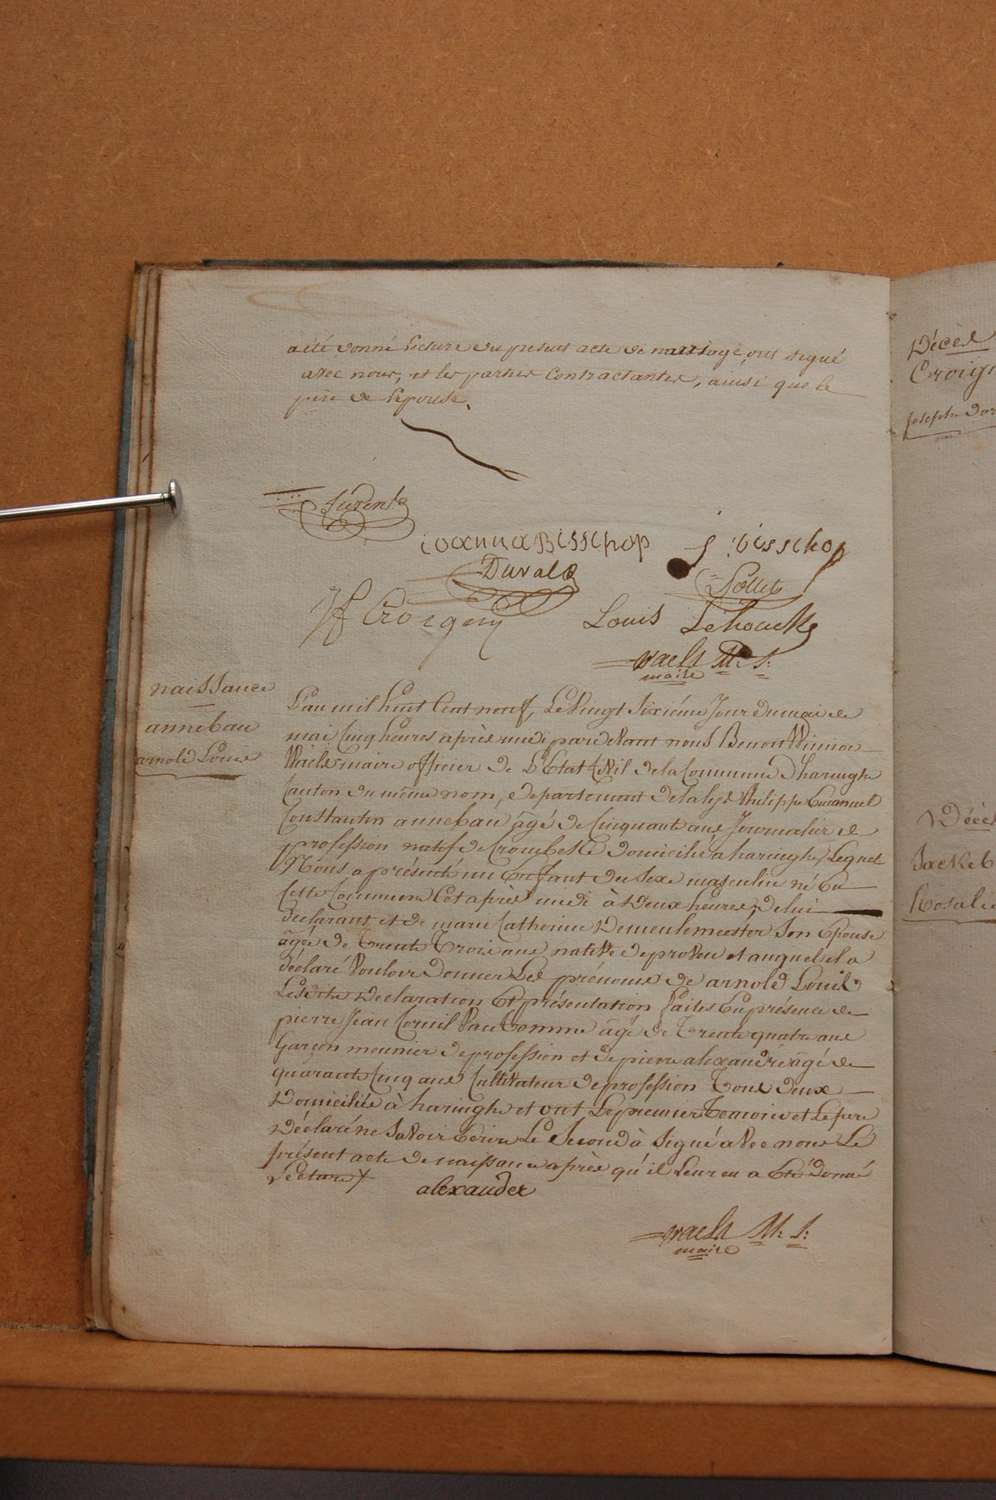 a été donné lecture du present acte de mariage ont signé
avec nous, et les parties contractantes, ainsi que le
père de l'epouse.
ioannaBisschop
Duvale
Pollet
Louis Lehoucke
Waels M. J.
maire
naissance
annebau
arnold Louis
L'an mil huit Cent neuf, Le Vingt Sixiéme Jour du mois de
mai Cinq heures après midi pardevant nous Benoit Winnoc
Waels maire officier de L'Etat Civil de la Commune D'haringhe
Canton du même nom, departement de la Lys Philippe Emanuel
Constantin annebau âgé de Cinquant ans Journalier de
profession natif de Crombeke domicilié a haringhe, Lequel
Nous a présenté un Enfant du Sexe masculin né En
Cette Commune Cet après midi à deux heures, de lui
déclarant et de marie Catherine Demeulemeester Son Epouse
âgée de Trente Trois ans native de proven et auquel il a
déclaré Vouloir Donner Les prénoms de arnold Louis
Lesdites Déclaration Et présentation faites En présence de
pierre Jean Corneil Vandomme âgé de Trente quatre ans
Garçon meunier de profession et de pierre alexandre âgé de
quarante Cinq ans Cultivateur de profession Tous deux
Domiciliés à haringhe et ont Le premier Temoin et Le père
Déclaré ne Savoir Ecrire Le Second à Signé avec nous Le
présent acte de naissance après qu'il Leur en a Eté donné
Lecture
alexander
Waels M. J.
maire
Décès
Croig
Joseph
Décès
Rosalie